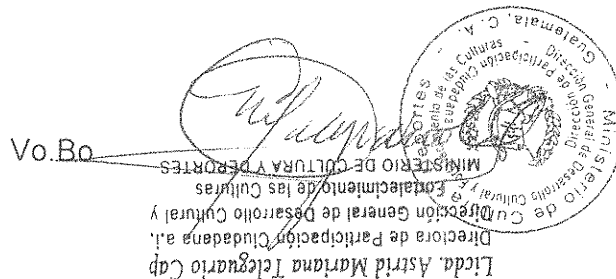 Vo.Bo
Licda. Astrid Mariana Teleguario Cap
Directora de Participación Ciudadana a.i.
Dirección General de Desarrollo Cultural y
Fortalecimiento de las Culturas
MINISTERIO DE CULTURA Y DEPORTES
Ministerio de Cultura y Deportes
Guatemala, C. A.
Dirección General de Desarrollo Cultural y
Fortalecimiento de las Culturas
Dirección de Participación Ciudadana